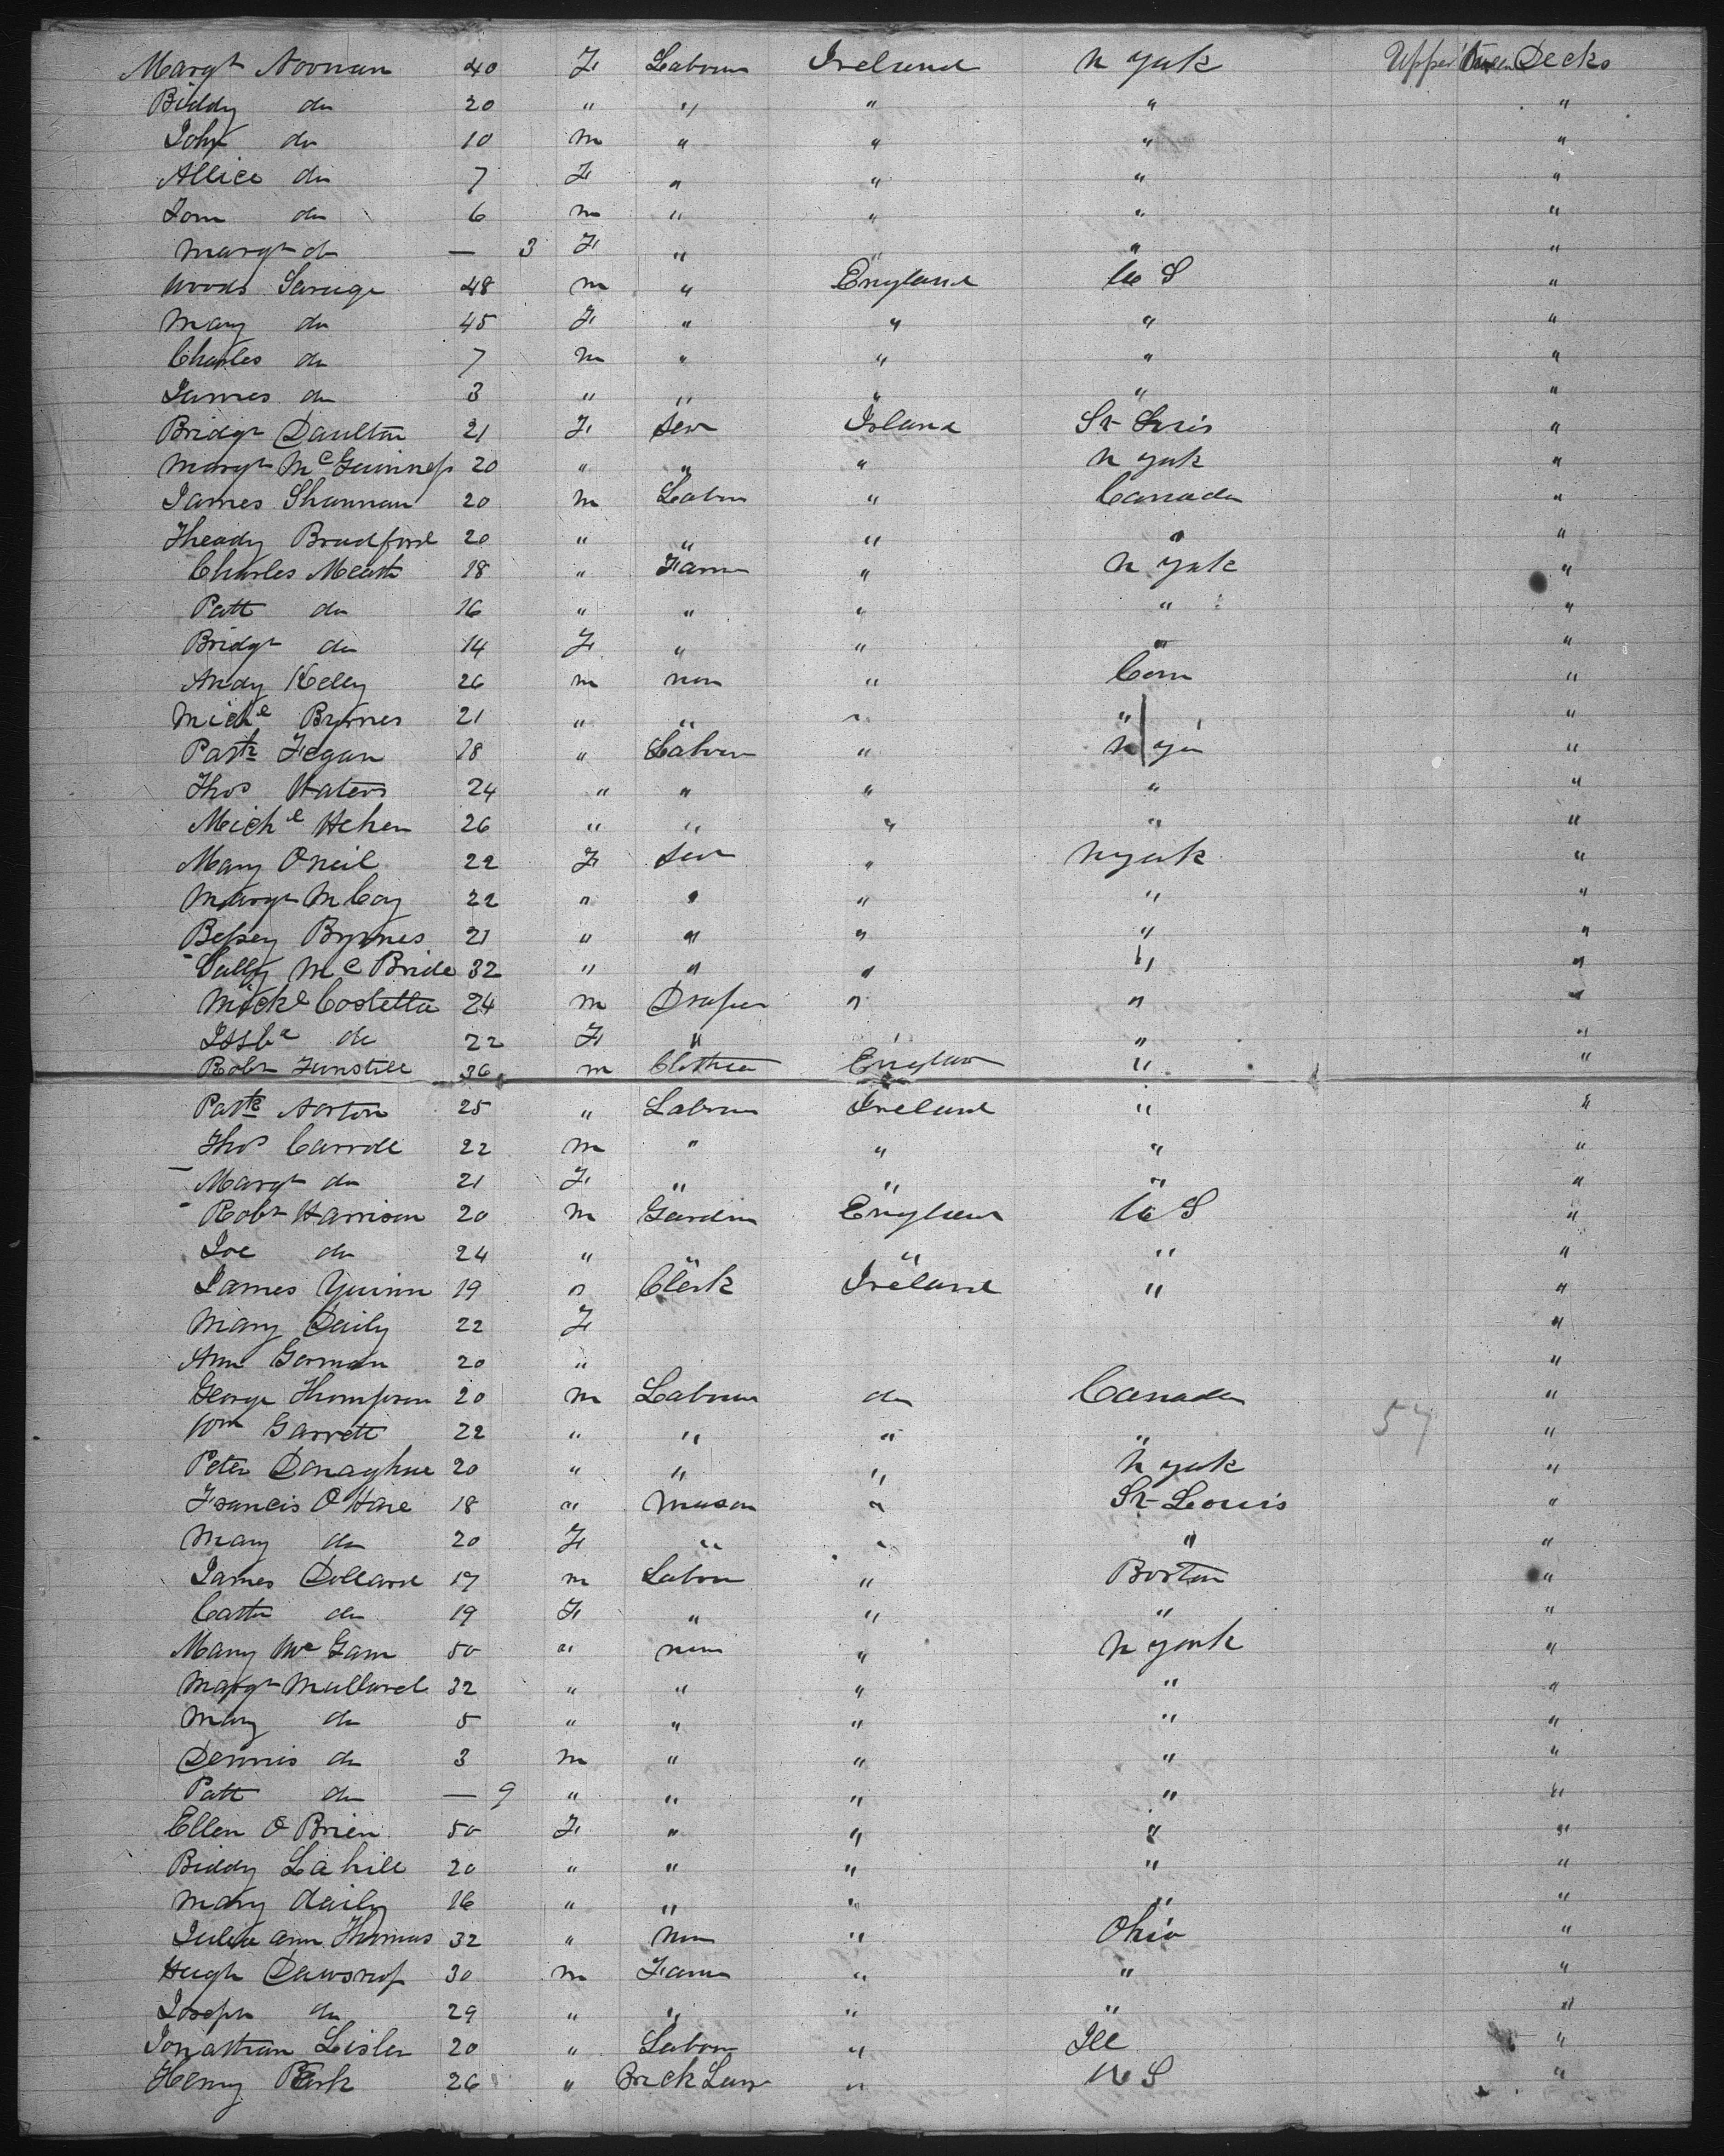 Margt Noonan 40 F Labour Ireland N York Upper Tween Decks
Biddy do 20 " " " " "
John do 10 m " " " "
Allice do 7 F " " " "
Tom do 6 m " " " "
Margt do — 3 F " " " "
Woods Savage 48 m " England U S "
Mary do 45 F " " " "
Charles do 7 m " " " "
James do 3 " " " " "
Bridgt Daulton 21 F Sew Ireland St Louis "
Margt McGuinness 20 " " " N York "
James Shannan 20 m Labour " Canada "
Theady Bradford 20 " " " " "
Charles Meath 18 " Farm " N York "
Patt do 16 " " " " "
Bridgt do 14 F " " " "
Andy Kelly 26 m non " Conn "
Michl Byrnes 21 " " " " "
Patk Fegan 18 " Labour " N Yo "
Thos Waters 24 " " " " "
Michl Hehen 26 " " " " "
Mary O neil 22 F Sew " N York "
Margt M Coy 22 " " " " "
Bessey Byrnes 21 " " " " "
Sally McBride 32 " " " " "
Michl Costella 24 m Draper " " "
Issba do 22 F " " " "
Robt Tunstill 36 m Clothier England " "
Patk Norton 25 " Labour Ireland " "
Thos Carroll 22 m " " " "
Margt do 21 F " " " "
Robt Harrison 20 m Gardin England U S "
Joe do 24 " " " " "
James Quinn 19 " Clerk Ireland " "
Mary Daily 22 F "
Ann Gorman 20 " "
George Thompson 20 m Labour do Canada "
Wm Garrett 22 " " " " 57 "
Peter Donaghue 20 " " " N York "
Francis O Hare 18 " Mason " St Louis "
Mary do 20 F " " " "
James Dollard 17 m Labour " Boston "
Cath do 19 F " " " "
Mary McGarr 50 " non " N York "
Margt Mullard 32 " " " " "
Mary do 5 " " " " "
Dennis do 3 m " " " "
Patt do — 9 " " " " "
Ellen O Brien 50 F " " " "
Biddy Lahill 20 " " " " "
Mary daily 16 " " " " "
Julia ann Thomas 32 " Non " Ohio "
Hugh Dawson 30 m Farm " " "
Joseph do 29 " " " " "
Jonathan Lisler 20 " Labour " Ill "
Henry Berk 26 " Brick Layr " U S "